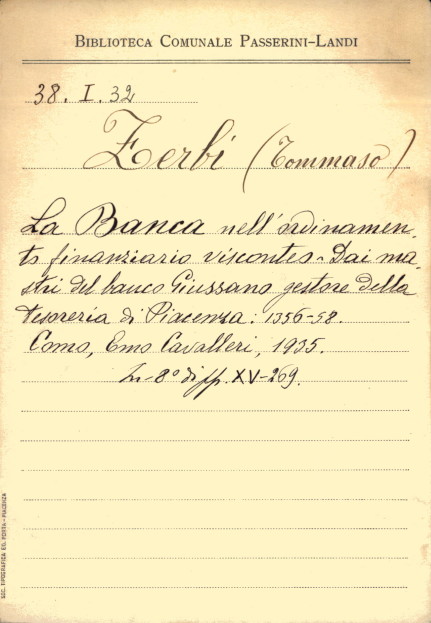 BIBLIOTECA COMUNALE PASSERINI-LANDI
38. I. 32
Zerbi (Tommaso)
La Banca nell'ordinamen-
to finanziario visconteo - Dai ma-
stri del banco Giussano gestore della
tesoreria di Piacenza: 1356-58.
Como, Emo Cavalleri, 1935.
In-8° di pp. XV-269.
SOC. TIPOGRAFICA ED. PORTA - PIACENZA